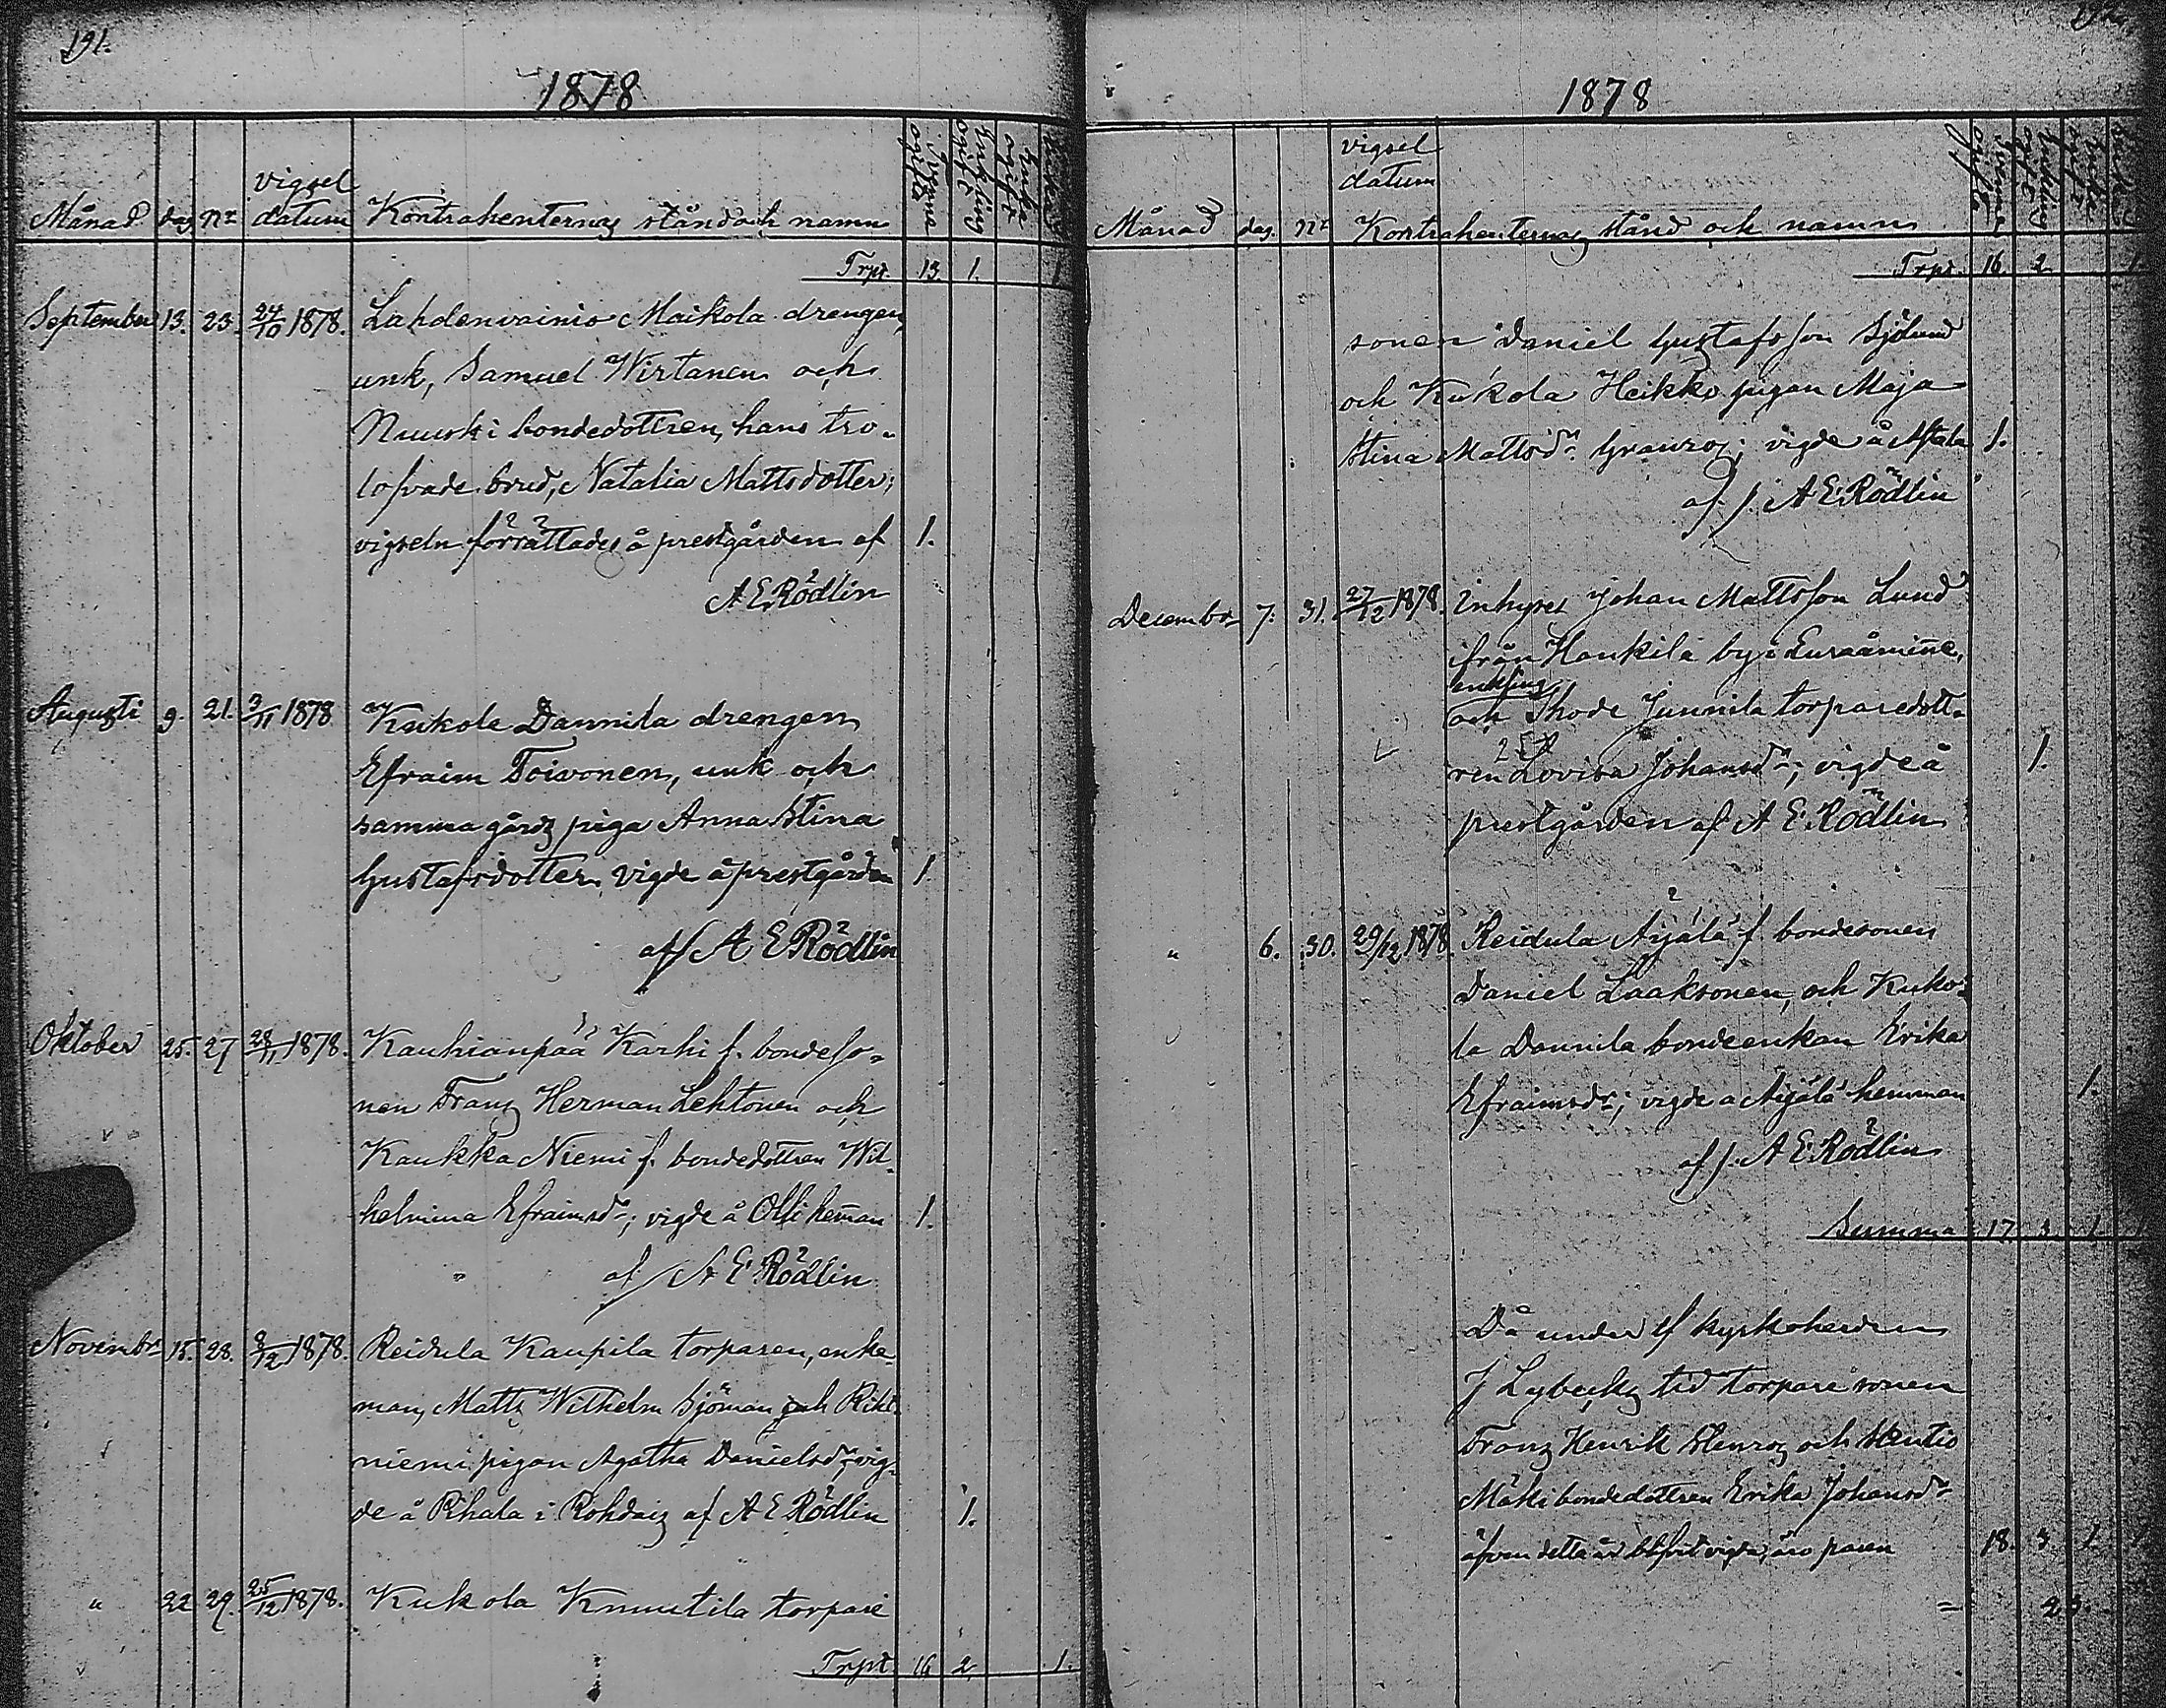 191.
1878
Månad dag nr vigsel datum Kontrahenternas stånd och namn ogifta enkling ogift enka ogift
Trpt. 13 1. 1
September 13. 23. 24/10 1878. Lahdenvainio Maikola drengen,
unk, Samuel Wirtanen och
Nuuski bondedottren, hans tro-
lofvade brud, Natalia Mattsdotter;
vigseln förrättades å prestgården af 1.
A E Rödlin
Augusti 9. 21. 3/11 1878 Kukola Dannila drengen
Efraim Toivonen, unk och
samma gårds piga Anna Stina
Gustafsdotter, vigde å prestgården 1
af A E Rödlin
Oktober 25. 27 28/11 1878. Kauhianpää Karhi f. bondeso-
nen Franz Herman Lehtonen och
Kaukka Niemi f. bondedottren Wil-
helmina Efraimsdr; vigde å Olli heman 1.
af A E Rödlin
Novembr 15. 28. 8/12 1878. Reidula Kaupila torparen, enke-
man, Matts Wilhelm Sjöman och Riht-
niemi pigan Agatha Danielsdr, vig-
de å Pihala i Rohdais af A E Rödlin 1.
" 22 29. 25/12 1878. Kukola Knuutila torpare
Trpt 16 2 1.
1878
Månad dag. nr vigsel datum Kontrahenternas stånd och namn ogifta enkling ogift enka ogift
Trpt. 16. 2 1.
sonen Daniel Gustafsson Sjölund
och Kukola Heikko pigan Maja
Stina Mattsdr Granroz; vigde å 1.
af A E Rödlin
Decembr 7. 31. 27/12 1878. Inhyses Johan Mattsson Lund
ifrån Haukila by i Euraåminne,
enkling
och Thode Junnila torparedott-
ren Lovisa Johansdr; vigde å 1.
prestgården af A E Rödlin
" 6. 30. 29/12 1878. Reidula Äijälä f. bondesonen
Daniel Laaksonen, och Kuko-
la Dannila bondeenkan Erika
Efraimsdr; vigde å Äijälä hemman 1.
af A E Rödlin
Summa 17 3 1 1
Då under kyrkoherden
J Lybecks tid torpare sonen
Franz Henrik Stenroz och
Mäki bondedottren Erika Johansdr
äfven detta år blifvit vigda, äro paren 18. 3 1. 1
= 23.